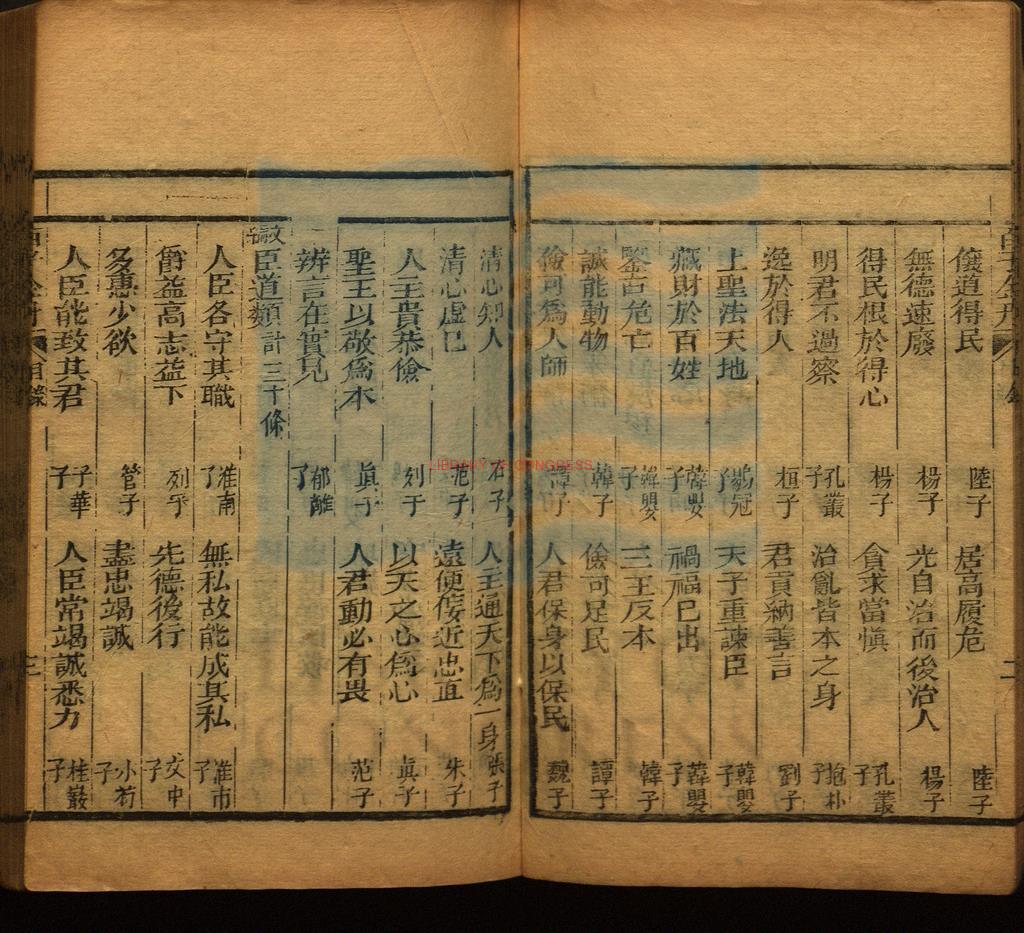 儀道得民 陸子 居高履危 陸子
無德速廢 楊子 光自治而後治人 楊子
得民根於得心 楊子 貪求當愼 孔叢子
明君不過察 孔叢子 治亂皆本之身 抱朴子
逸於得人 桓子 君貢納善言 劉子
上聖法天地 鶡冠子 天子重諫臣 韓嬰子
藏財於百姓 韓嬰子 禍福已出 韓嬰子
鑒古危亡 韓嬰子 三王反本 韓子
誠能動物 韓子 儉可足民 譚子
儉可爲人師 譚子 人君保身以保民 魏子
清心知人 石子 人主通天下爲一身 張子
清心虛己 范子 遠便佞近忠直 朱子
人主貴恭儉 列子 以天之心爲心 眞子
聖王以敬爲本 眞子 人君動必有畏 范子
辨言在實見 郁離子
臣道類 計三十條
人臣各守其職 淮南子 無私故能成其私 淮南子
爵益高志益下 列子 先德後行 文中子
多惠少欲 管子 盡忠竭誠 小荀子
人臣能致其君 子華子 人臣常竭誠悉力 桂巖子
目錄
LIBRARY OF CONGRESS